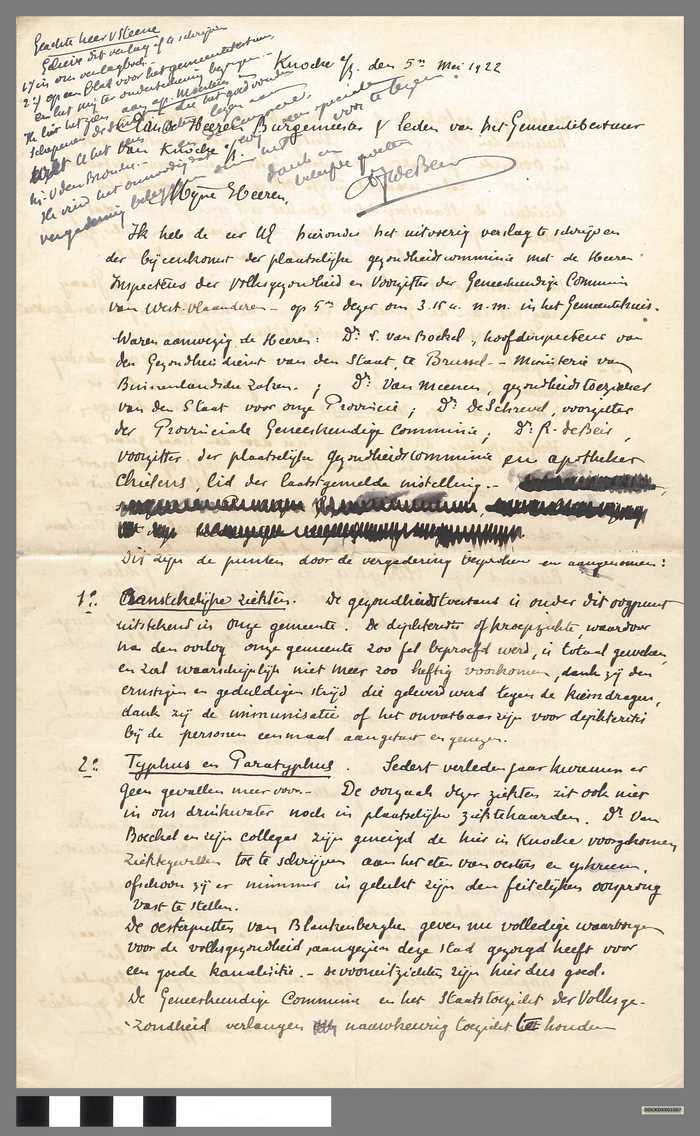 Geachte heer VSteene
Gelieve dit verslag af te schrijven
1º/ in ons verslagboek.-
2º/ op een blad voor het gemeentebestuur,
Knocke a/z. den 5n Mei 1922
Aan de Heeren Burgemeester & leden van het Gemeentebestuur
van Knocke a/z.
dank en
beleefde groeten
DrdeBeir
Mijne Heeren,
Ik heb de eer UE hieronder het uitvoerig verslag te schrijven
der bijeenkomst der plaatselijke gezondheidscommissie met de Heeren
Inspecteurs der Volksgezondheid en Voorzitter der Geneeskundige Commissie
van West-Vlaanderen - op 5n dezer om 3.15 u. n.m. in het Gemeentehuis.
Waren aanwezig de Heeren: Dr. S. van Boekel, hoofdinspecteur van
den Gezondheidsdienst van den Staat, te Brussel - Ministerie van
Binnenlandsche Zaken.; Dr. Van Meenen, gezondheidstoeziener
van den Staat voor onze Provincie; Dr. De Schrevel, voorzitter
der Provinciale Geneeskundige Commissie; Dr. R. de Beir,
voorzitter der plaatselijke gezondheidscommissie en apotheker
Chielens, lid der laatstgemelde instelling.-
Dit zijn de punten door de vergadering besproken en aangenomen:
1º. Aanstekelijke ziekten. De gezondheidstoestand is onder dit oogpunt
uitstekend in onze gemeente. De diphteritis of kroepziekte, waardoor
na den oorlog onze gemeente zoo fel beproefd werd, is totaal geweken,
en zal waarschijnlijk niet meer zoo heftig voorkomen, dank zij den
ernstigen en geduldigen strijd die geleverd werd tegen de kiemdragers,
dank zij de immunisatie of het onvatbaar zijn voor diphteritis
bij de personen eenmaal aangetast en genezen.
2º. Typhus en Paratyphus. Sedert verleden jaar kwamen er
geen gevallen meer voor.- De oorzaak dezer ziekten zit ook niet
in ons drinkwater noch in plaatselijke ziektehaarden. Dr. Van
Boeckel en zijn collegas zijn geneigd de hier in Knocke voorgekomen
ziektegevallen toe te schrijven aan het eten van oesters en ijskreem,
ofschoon zij er nimmer in gelukt zijn den feitelijken oorsprong
vast te stellen.
De oesterputten van Blankenberghe geven nu volledige waarborgen
voor de volksgezondheid, aangezien deze stad gezorgd heeft voor
een goede kanalisatie.- De vooruitzichten zijn hier dus goed.
De Geneeskundige Commissie en het Staatstoezicht der Volksge-
zondheid verlangen nauwkeurig toezicht te houden